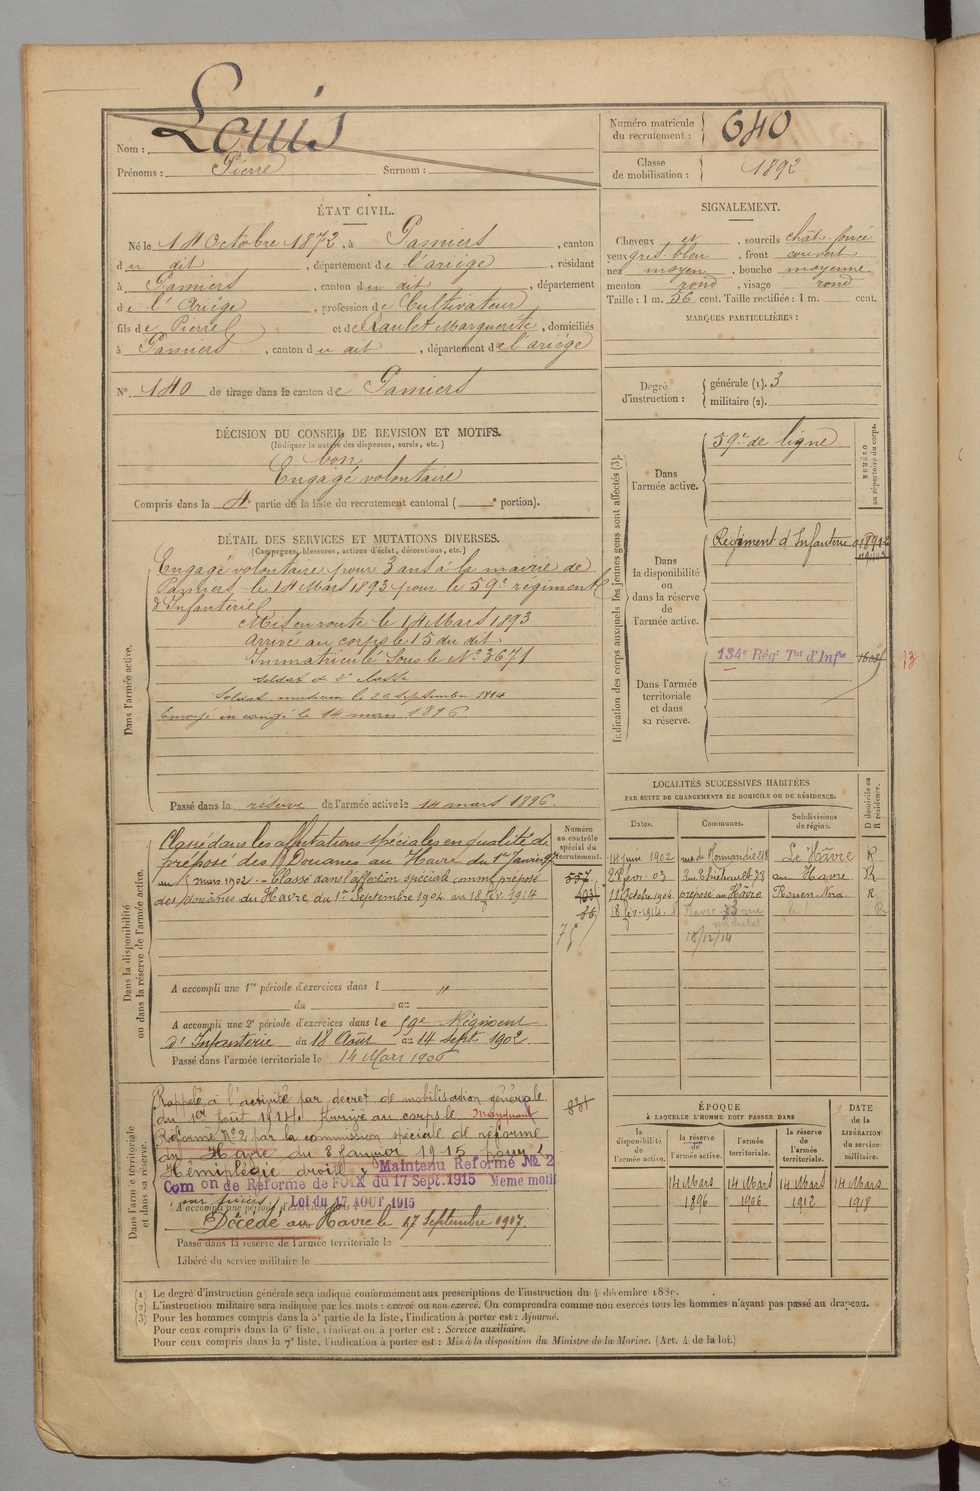 Nom : Louis
Prénoms : Pierre Surnom :
Numéro matricule du recrutement : 640
Classe de mobilisation : 1892
ÉTAT CIVIL.
Né le 14 Octobre 1872, à Pamiers, canton
du dit, département de l'ariége, résidant
à Pamiers, canton du dit, département
de l'Ariége, profession de Cultivateur
fils de Pierre et de Raulet Marguerite, domiciliés
à Pamiers, canton du dit, département de l'ariége
N° 140 de tirage dans le canton de Pamiers
SIGNALEMENT.
Cheveux et, sourcils chât. foncé
yeux gris bleu, front couvert
nez moyen, bouche moyenne
menton rond, visage rond
Taille : 1 m. 56 cent. Taille rectifiée : 1 m. cent.
MARQUES PARTICULIÈRES :
Degré d'instruction : générale (1). 3
militaire (2).
DÉCISION DU CONSEIL DE REVISION ET MOTIFS.
(Indiquer la nature des dispenses, sursis, etc.)
bon
Engagé volontaire
Compris dans la 4e partie de la liste du recrutement cantonal ( e portion).
DÉTAIL DES SERVICES ET MUTATIONS DIVERSES.
(Campagnes, blessures, actions d'éclat, décorations, etc.)
Dans l'armée active.
Engagé volontaire pour 3 ans à la mairie de
Pamiers, le 14 Mars 1893 pour le 59e régiment
d'Infanterie
Mis en route le 14 Mars 1893
Arrivé au corps le 15 du dit.
Immatriculé Sous le N° 3671
Soldat de 2e classe
Soldat musicien le 26 septembre 1894
Envoyé en congé le 14 mars 1896
Passé dans la réserve de l'armée active le 14 mars 1896.
Indication des corps auxquels les jeunes gens sont affectés (3).
NUMÉRO au répertoire du corps.
Dans l'armée active.
59e de ligne
Dans la disponibilité ou dans la réserve de l'armée active.
Régiment d'Infanterie
Dans l'armée territoriale et dans sa réserve.
134e Régt Tal d'Infie
13
Dans la disponibilité ou dans la réserve de l'armée active.
Numéro au contrôle spécial du recrutement.
Classé dans les affectations spéciales en qualité de
préposé des Douanes au Havre du 1er Janvier
au 15 mars 1902. - Classé dans l'affection spéciale comme préposé
des douanes du Havre du 1er Septembre 1904 au 18 fév. 1914
557
36
75
A accompli une 1re période d'exercices dans l "
du au
A accompli une 2e période d'exercices dans le 59e Régiment
d'Infanterie du 18 Août au 14 Sept. 1902
Passé dans l'armée territoriale le 14 Mars 1906
LOCALITÉS SUCCESSIVES HABITÉES
PAR SUITE DE CHANGEMENTS DE DOMICILE OU DE RÉSIDENCE.
Dates. Communes. Subdivisions de région. D domicile ou R résidence.
14 juin 1902 rue de Normandie 218 Le Hâvre R
28 févr. 03 Rue Thiébault 78 au Havre R
11 Octobre 1904 préposé au Hâvre Rouen Nord R
18 fév. 1914 Havre rue R
18/12/14
Dans l'armée territoriale et dans sa réserve.
Rappelé à l'activité par décret de mobilisation générale
du 1er Août 1914. Arrivé au corps le Manquant
Réformé N° 2 par la commission spéciale de réforme
du Havre du 8 Janvier 1915 pour
Hémiplégie droite. Maintenu Réformé No 2
Com on de Réforme de FOIX du 17 Sept. 1915 Meme motif
sur pièces Loi du 17 AOUT 1915
A accompli une période d'exercices
Décédé au Havre le 17 Septembre 1917.
Passé dans la réserve de l'armée territoriale le
Libéré du service militaire le
ÉPOQUE
À LAQUELLE L'HOMME DOIT PASSER DANS
DATE de la LIBÉRATION du service militaire.
la disponibilité de l'armée active. la réserve de l'armée active. l'armée territoriale. la réserve de l'armée territoriale.
14 Mars 14 Mars 14 Mars 14 Mars
1896 1906 1912 1918
(1) Le degré d'instruction générale sera indiqué conformément aux prescriptions de l'instruction du 4 décembre 1889.
(2) L'instruction militaire sera indiquée par les mots : exercé ou non exercé. On comprendra comme non exercés tous les hommes n'ayant pas passé au drapeau.
(3) Pour les hommes compris dans la 5e partie de la liste, l'indication à porter est : Ajourné.
Pour ceux compris dans la 6e liste, l'indication à porter est : Service auxiliaire.
Pour ceux compris dans la 7e liste, l'indication à porter est : Mis à la disposition du Ministre de la Marine. (Art. 4 de la loi.)